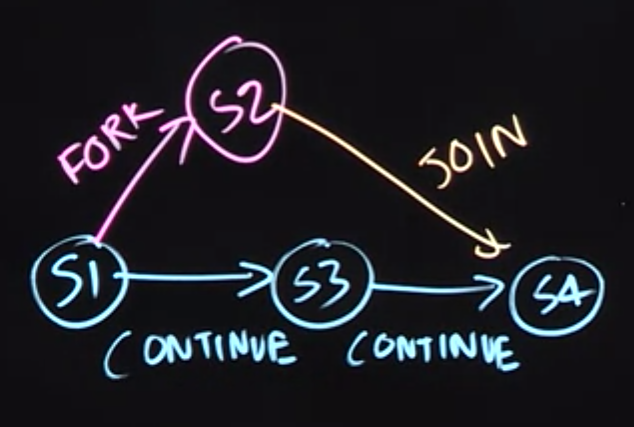 S2
FORK
JOIN
S1
S3
S4
CONTINUE
CONTINUE